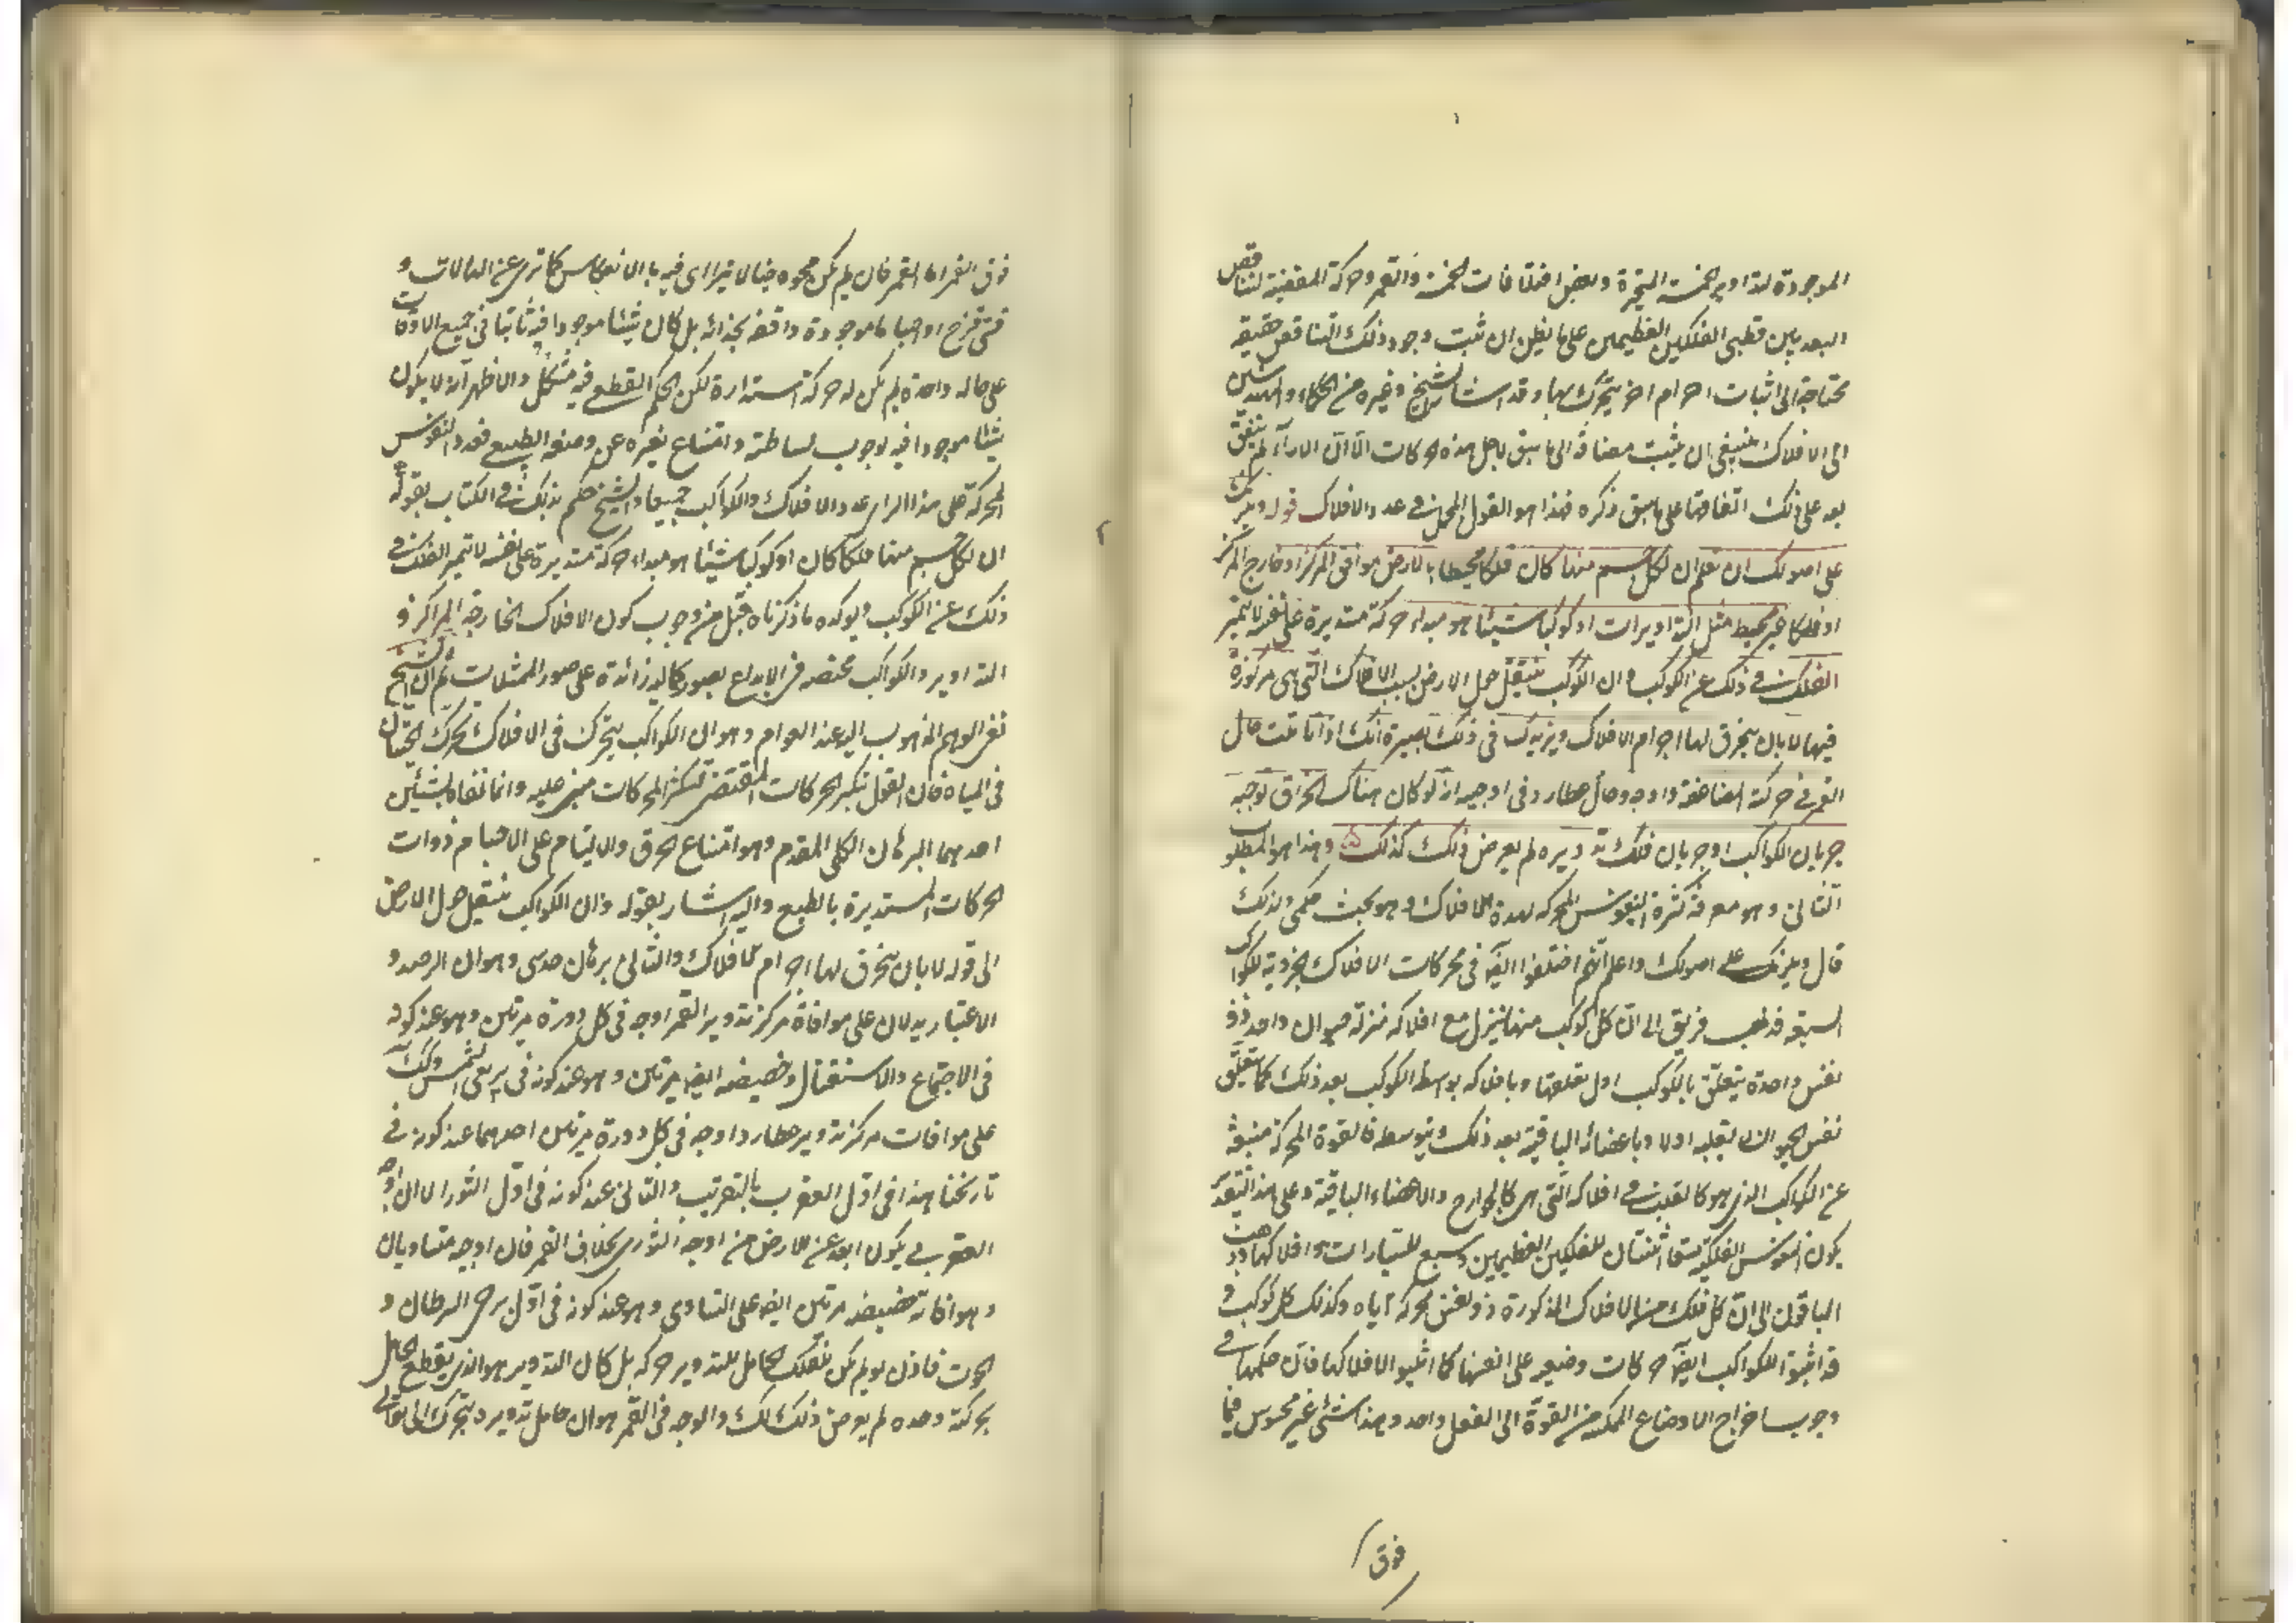 الموجودة لتداوير الخمسة المتحيرة وبعض اختلافات الخمسة والقمر وحركة المقتضية لتناقص
البعد بين قطبي الفلكين العظيمين على ما يظن ان ثبت وجود ذلك التناقص حقيقة
محتاجة الى اثبات اجرام اخر يتحرك بها وقد اشار الشيخ وغيره من الحكماء والمهندسين
الى الافلاك فينبغي ان يثبت مضافة الى ما سبق لاجل هذه الحركات الا ان الآراء لم يتفق
بعد على ذلك اتفاقها على ما سبق ذكره فهذا هو القول المجمل في عدد الافلاك قوله ويلزمك
على اصولك ان تعلم ان لكل جسم منها كان فلكا محيطا بالارض موافق المركز او خارج المركز
او فلكا غير محيط مثل التداويرات او كوكبا شيئا هو مبداء حركة مستديرة على نفسه لا يتميز
الفلك في ذلك عن الكوكب وان الكوكب ينتقل حول الارض بسبب الافلاك التي هي مركوزة
فيها لا بان ينخرق لها اجرام الافلاك ويزيدك في ذلك بصيرة انك اذا تاملت حال
القمر في حركته المضاعفة واوجه وحال عطارد في اوجيه انه لو كان هناك انخراق يوجبه
جريان الكواكب او جريان فلك تدويره لم يعرض ذلك كذلك وهذا هو المطلوب
الثاني وهو معرفة كثرة النفوس المحركة لهذه الافلاك وهو بحث حكمي ولذلك
قال ويلزمك على اصولك واعلم انهم اختلفوا ايضا في محركات الافلاك الجزوية للكواكب
السبعة فذهب فريق الى ان كل كوكب منها ينزل مع افلاكه منزلة حيوان واحد ذو
نفس واحدة يتعلق بالكوكب اول تعلقها وبافلاكه بواسطة الكوكب بعد ذلك كما يتعلق
نفس الحيوان بقلبه اولا وباعضائه الباقية بعد ذلك وبتوسطه فالقوة المحركة منبعثة
عن الكواكب الذي هو كالقلب في افلاكه التي هي كالجوارح والاعضاء الباقية وعلى هذا التقدير
يكون النفوس الفلكية تسعا اثنتان للفلكين العظيمين وسبع للسيارات وافلاكها وذهب
الباقون الى ان كل فلك من الافلاك المذكورة ذو نفس محركة اياه وكذلك كل كوكب و
قد اثبتوا للكواكب ايضا حركات وضعية على انفسها كما اثبتوا لافلاكها فان حكمها في
وجوب اخراج الاوضاع الممكنة من القوة الى الفعل واحد وهذا شيء غير محسوس فيما
فوق
فوق القمر اما القمر فان لم يكن محوه خيالا يترااى فيه بالانعكاس كما ترى عن الهالات و
قسي قزح او اجساما موجودة واقفة بحذائه بل كان شيئا موجودا فيه ثابتا في جميع الاوقات
على حالة واحدة لم يكن له حركة استدارة لكن الحكم القطعي فيه مشكل والاظهر انه لا يكون
شيئا موجودا فيه لوجوب بساطته وامتناع تغيره عن وضعه الطبيعي فعدد النفوس
المحركة على هذا الراى عدد الافلاك والكواكب جميعا والشيخ حكم بذلك في الكتاب بقوله
ان لكل جسم منها فلكا كان او كوكبا شيئا هو مبداء حركة مستديرة على نفسه لا يتميز الفلك في
ذلك عن الكوكب ويوكده ما ذكرناه قبل من وجوب كون الافلاك الخارجة المراكز و
التداوير والكواكب مختصة في الابداع بصور كمالية زائدة على صور الممثلات ثم ان الشيخ
نفى الوهم المذهوب اليه عند العوام وهو ان الكواكب يتحرك في الافلاك تحرك الحيتان
في المياه فان القول بتكثر الحركات المقتضي لتكثر المحركات مبني عليه وانما نفاه بشيئين
احدهما البرهان الكلي المقدم وهو امتناع الخرق والالتيام على الاجسام ذوات
الحركات المستديرة بالطبع واليه اشار بقوله وان الكواكب ينتقل حول الارض
الى قوله لا بان ينخرق لها اجرام الافلاك والثاني برهان حدسي وهو ان الرصد و
الاعتبار يدلان على موافاة مركز تدوير القمر اوجه في كل دورة مرتين وهو عند كونه
في الاجتماع والاستقبال وحضيضه ايضا مرتين وهو عند كونه في تربيعي الشمس وكذلك
على موافات مركز تدوير عطارد اوجه في كل دورة مرتين احدهما عند كونه في
تاريخنا هذا في اول العقرب بالتقريب والثاني عند كونه في اول الثور الا ان اوجه
العقربي يكون ابعد عن الارض من اوجه الثوري بخلاف القمر فان اوجيه متساويان
وموافاته حضيضه مرتين ايضا على التساوي وهو عند كونه في اول برج السرطان و
الحوت فاذن لو لم يكن للفلك الحامل للتدوير حركة بل كان التدوير هو الذي يقطع الحامل
بحركته وحده لم يعرض ذلك كذلك والوجه في القمر هو ان حامل تدويره يتحرك الى التوالي